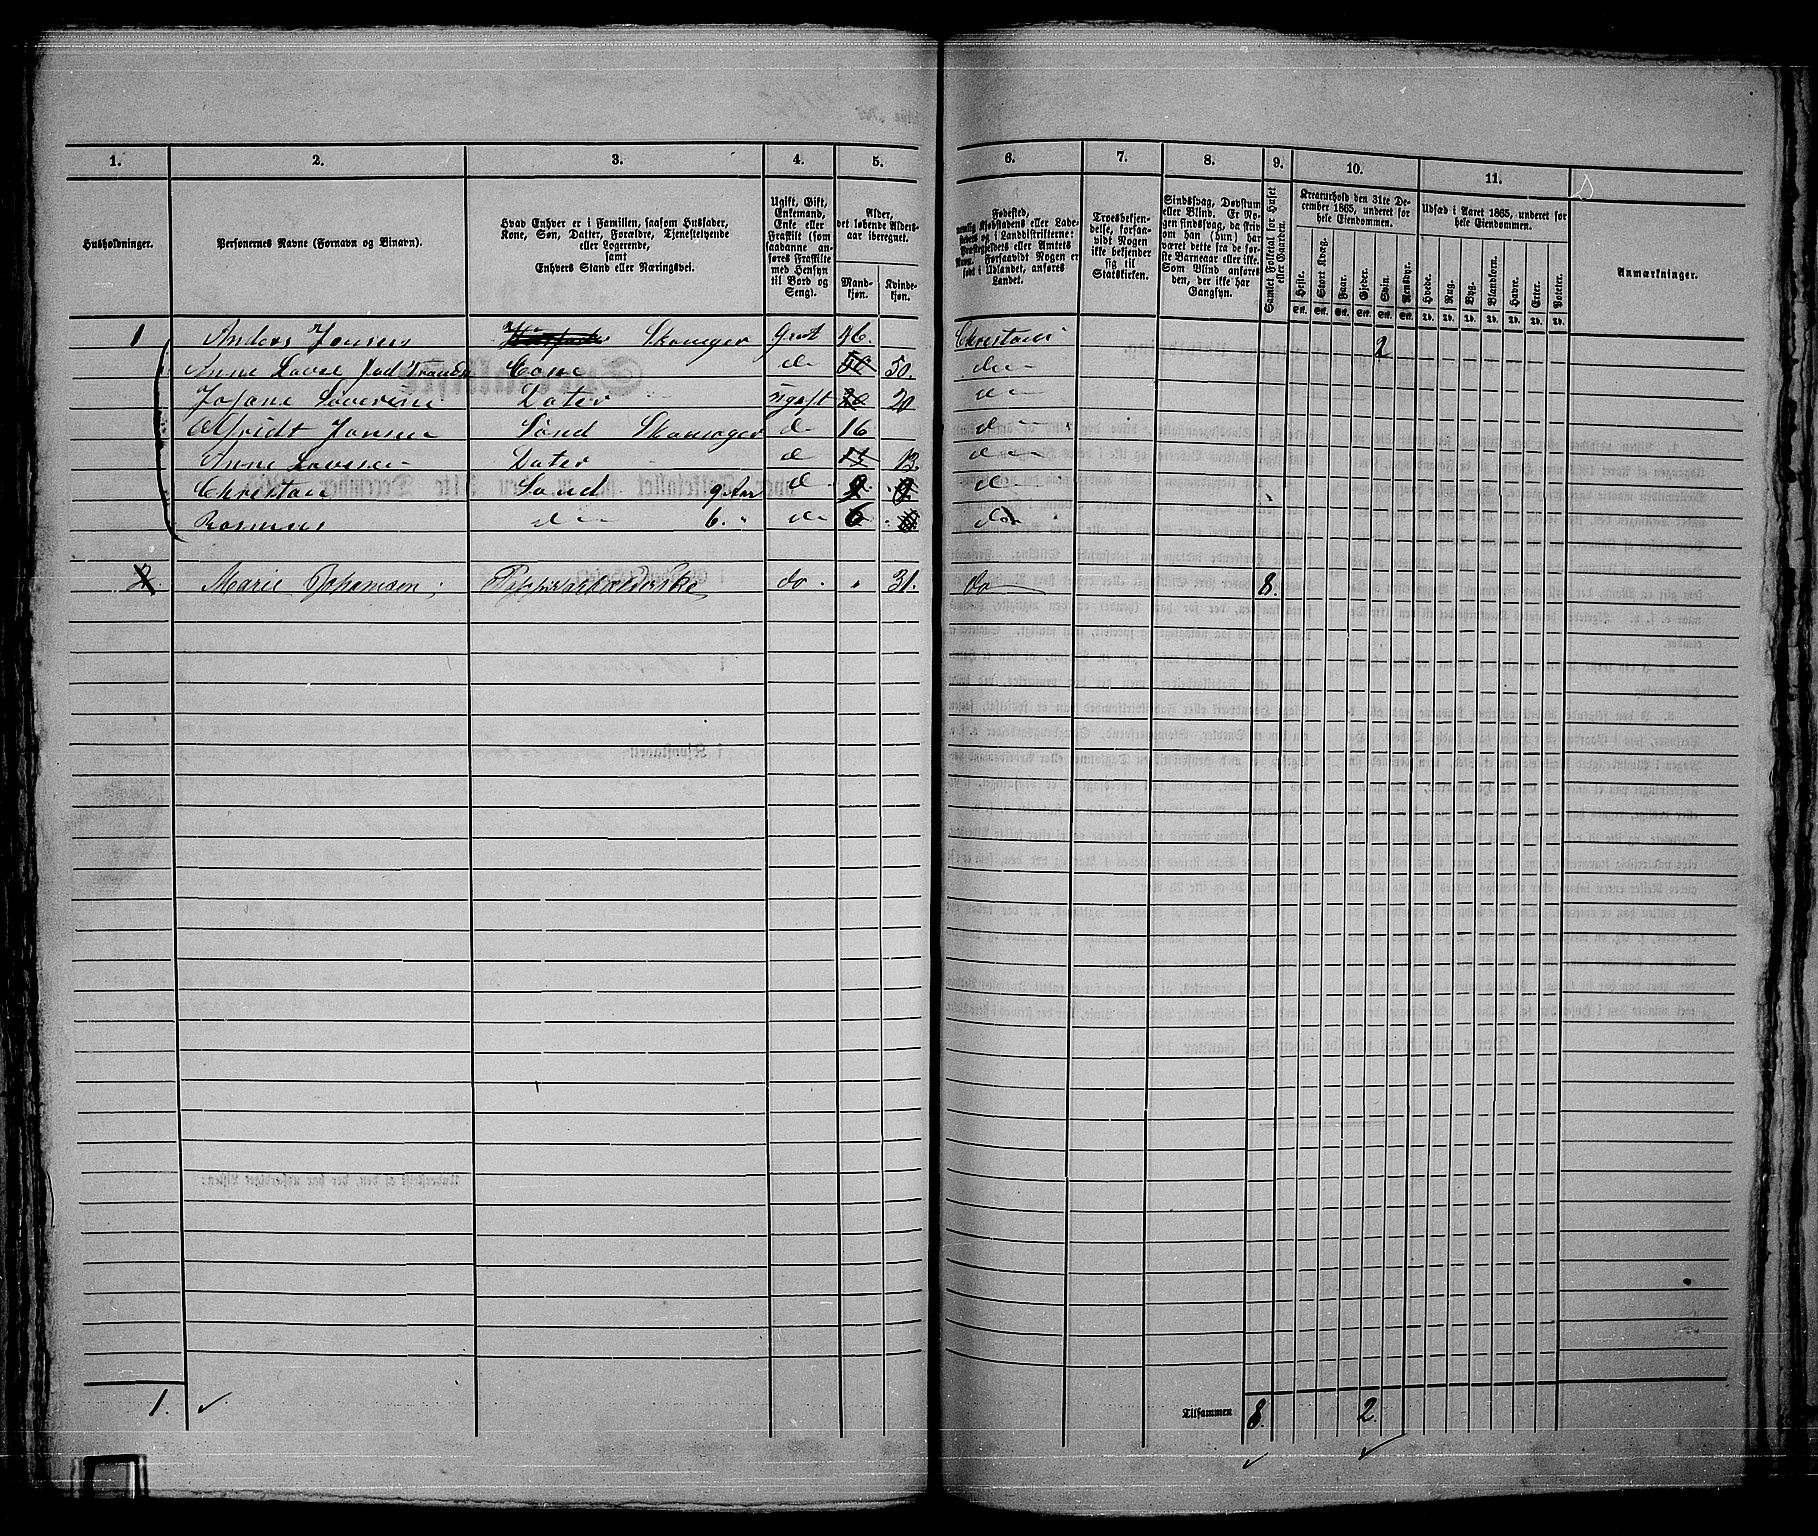 1. 2. 3. 4. 5. 6. 7. 8. 9. 10. 11.
Husholdninger.
Personernes Navne (Fornavn og Binavn).
Hvad Enhver er i Familien, saasom Husfader,
Kone, Søn, Datter, Forældre, Tjenestetyende
eller Logerende,
samt
Enhvers Stand eller Næringsvei.
Ugift, Gift,
Enkemand,
Enke eller
Fraskilt (som
saadanne an-
føres Fraskilte
med Hensyn
til Bord og
Seng).
Alder,
det løbende Alders-
aar iberegnet.
Mand-
kjøn.
Kvinde-
kjøn.
Fødested,
nemlig Kjøbstadens eller Lade-
stedets og i Landdistrikterne:
Præstegjeldets eller Amtets
Navn. Forsaavidt Nogen er
født i Udlandet, anføres
Landet.
Troesbekjen-
delse, forsaa-
vidt Nogen
ikke bekjender
sig til
Statskirken.
Sindssvag, Døvstum
eller Blind. Er No-
gen sindssvag, da skriv
om han (hun) har
været dette fra de før-
ste Barneaar eller ikke.
Som Blind anføres
den, der ikke har
Gangsyn.
Samlet Folketal for Huset
eller Gaarden.
Kreaturhold den 31te De-
cember 1865, underet for
hele Eiendommen.
Heste. Stort Kvæg. Faar. Gjeder. Svin. Rensdyr.
St. St. St. St. St. St.
Udsæd i Aaret 1865, underet for
hele Eiendommen.
Hvede. Rug. Byg. Blandkorn. Havre. Erter. Poteter.
Td. Td. Td. Td. Td. Td. Td.
Anmærkninger.
1 Anders Jensen Skomager givt 46. 2
Anne Lovise Kone do 50.
Datter ugift 20
Jansen Sønd Skomager d 16
Anne Datter d 13.
Christian Sønd 9 Aar d 9
Rasmus do 6. " do 6
2 Marie do " 31. do 8.
1. Tilsammen 8. 2.